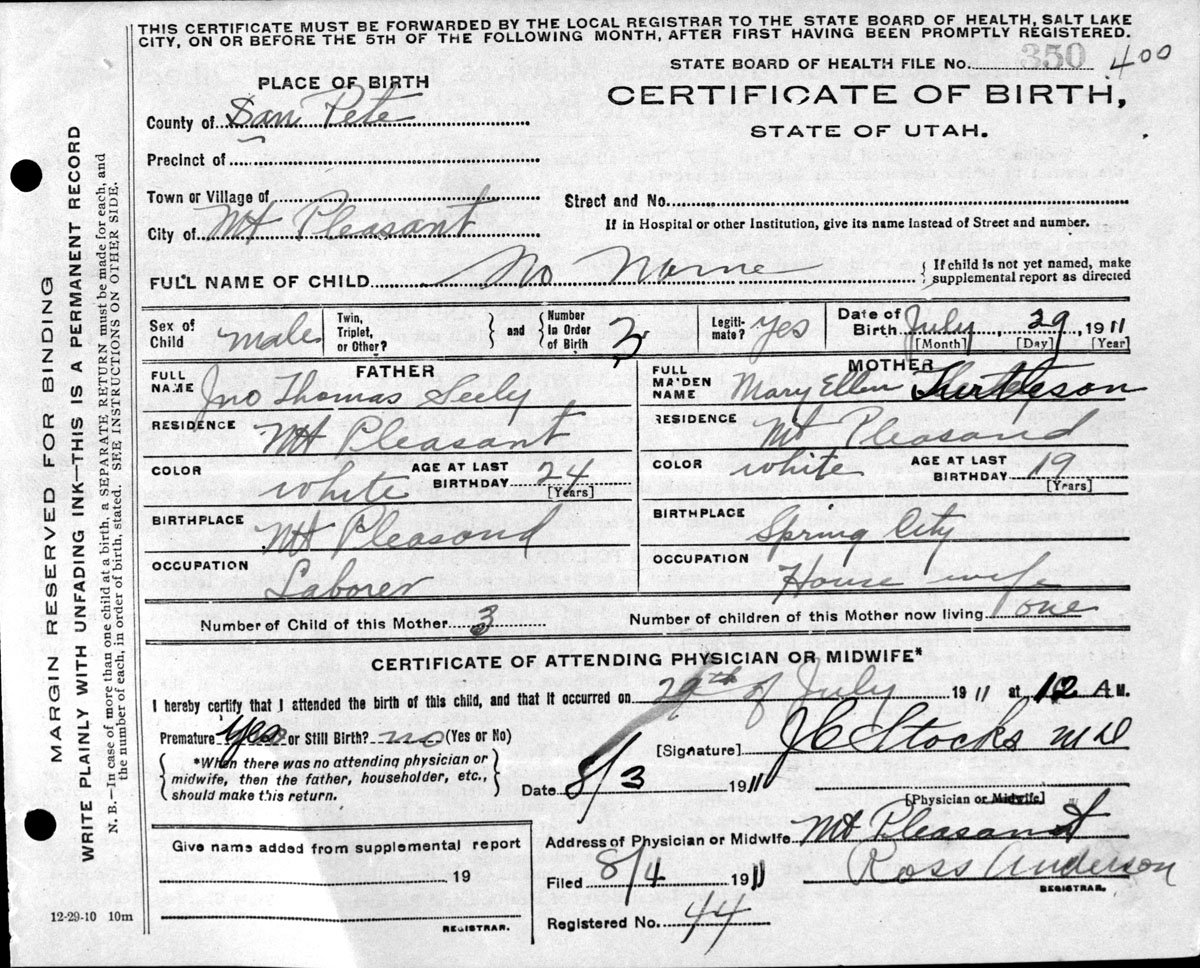 THIS CERTIFICATE MUST BE FORWARDED BY THE LOCAL REGISTRAR TO THE STATE BOARD OF HEALTH, SALT LAKE
CITY, ON OR BEFORE THE 5TH OF THE FOLLOWING MONTH, AFTER FIRST HAVING BEEN PROMPTLY REGISTERED.
STATE BOARD OF HEALTH FILE No. 350 400
PLACE OF BIRTH
CERTIFICATE OF BIRTH,
STATE OF UTAH.
County of San Pete
Precinct of
Town or Village of
Street and No.
City of Mt Pleasant
If in Hospital or other Institution, give its name instead of Street and number.
FULL NAME OF CHILD No Name
{ If child is not yet named, make
supplemental report as directed
Sex of Child male
Twin, Triplet, or Other? } and { Number In Order of Birth 3
Legiti-mate? Yes
Date of Birth July 29, 1911
[Month] [Day] [Year]
FATHER
FULL NAME Jno Thomas Seely
RESIDENCE Mt Pleasant
COLOR white AGE AT LAST BIRTHDAY 24 [Years]
BIRTHPLACE Mt Pleasand
OCCUPATION Laborer
MOTHER
FULL MAIDEN NAME Mary Ellen
RESIDENCE Mt Pleasand
COLOR white AGE AT LAST BIRTHDAY 19 [Years]
BIRTHPLACE Spring City
OCCUPATION House wife
Number of Child of this Mother 3 Number of children of this Mother now living one
CERTIFICATE OF ATTENDING PHYSICIAN OR MIDWIFE*
I hereby certify that I attended the birth of this child, and that it occurred on 29th of July 1911 at 12 A M.
Premature yes or Still Birth? no (Yes or No)
[Signature] J C Stocks M D
{ *When there was no attending physician or
midwife, then the father, householder, etc.,
should make this return. }
Date 8/3 1911
[Physician or Midwife]
Address of Physician or Midwife Mt Pleasant
Give name added from supplemental report
19
REGISTRAR.
Filed 8/4 1911 Ross Anderson
REGISTRAR.
Registered No. 44
12-29-10 10m
MARGIN RESERVED FOR BINDING
WRITE PLAINLY WITH UNFADING INK—THIS IS A PERMANENT RECORD
N. B.—In case of more than one child at a birth, a SEPARATE RETURN must be made for each, and
the number of each, in order of birth, stated. SEE INSTRUCTIONS ON OTHER SIDE.